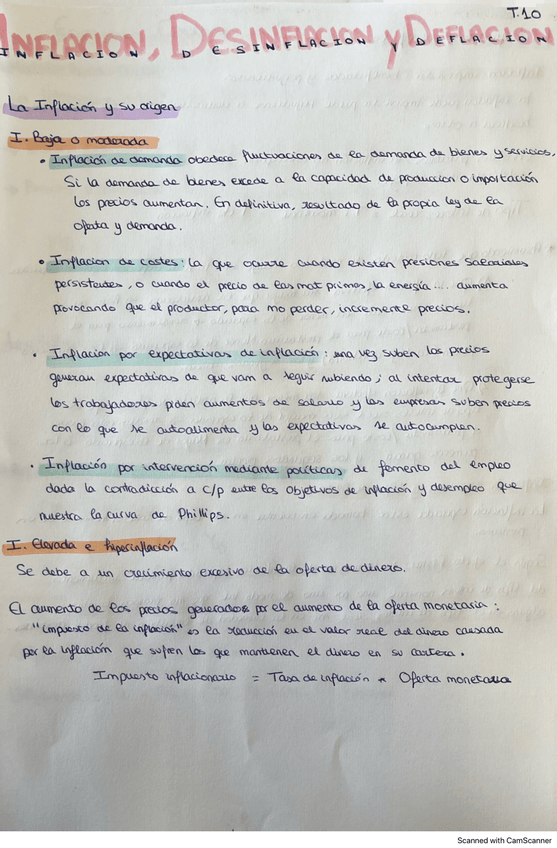 T.10
INFLACION, DESINFLACION y DEFLACION
INFLACION DESINFLACION Y DEFLACION
La Inflación y su origen
I. Baja o moderada
• Inflación de demanda obedece fluctuaciones de la demanda de bienes y servicios,
Si la demanda de bienes excede a la capacidad de produccion o importación
los precios aumentan. En definitiva, resultado de la propia ley de la
oferta y demanda.
• Inflacion de costes: la que ocurre cuando existen presiones salariales
persistentes, o cuando el precio de las mat primas, la energía .... aumenta
provocando que el productor, para no perder, incremente precios.
• Inflación por expectativas de inflación: una vez suben los precios
generan expectativas de que van a seguir subiendo; al intentar protegerse
los trabajadores piden aumentos de salario y las empresas suben precios
con lo que se autoalimenta y las expectativas se autocumplen.
• Inflación por intervención mediante políticas de fomento del empleo
dada la contradicción a c/p entre los objetivos de inflación y desempleo que
muestra la curva de Phillips.
I. Elevada e hiperinflación
Se debe a un crecimiento excesivo de la oferta de dinero.
El aumento de los precios generados por el aumento de la oferta monetaria:
"impuesto de la inflación" es la reducción en el valor real del dinero causada
por la inflación que sufren los que mantienen el dinero en su cartera.
Impuesto inflacionario = Tasa de inflación * Oferta monetaria
Scanned with CamScanner